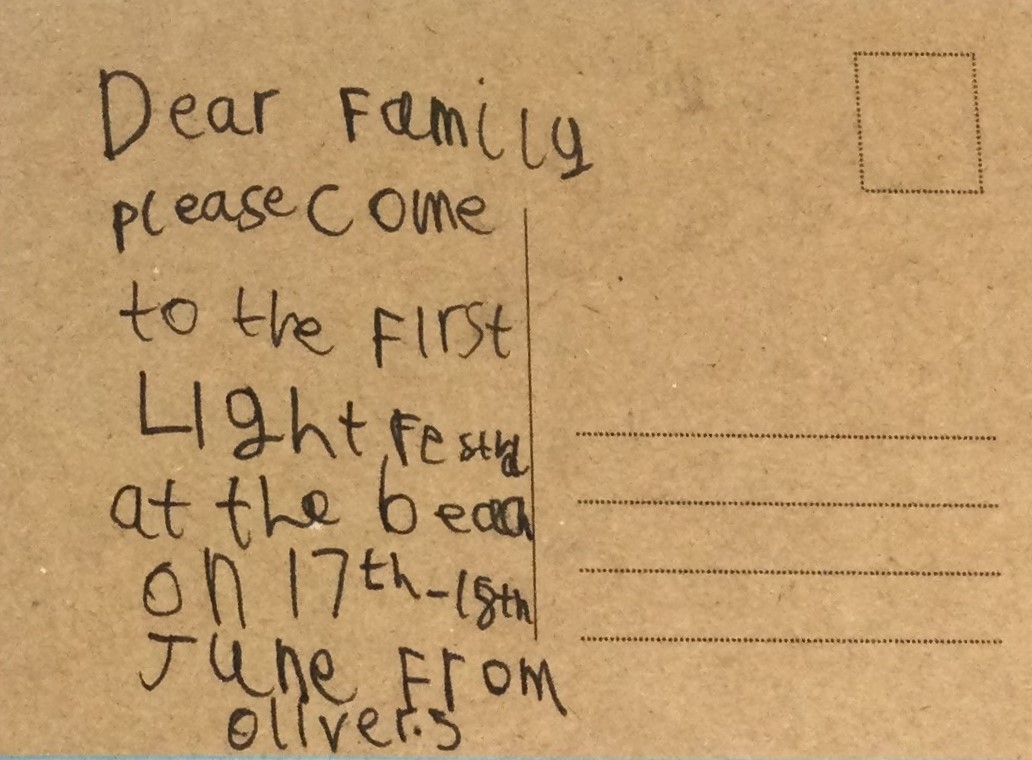 Dear Family
please come
to the First
LIght Festival
at the beach
on 17th-18th
June From
oliver.s